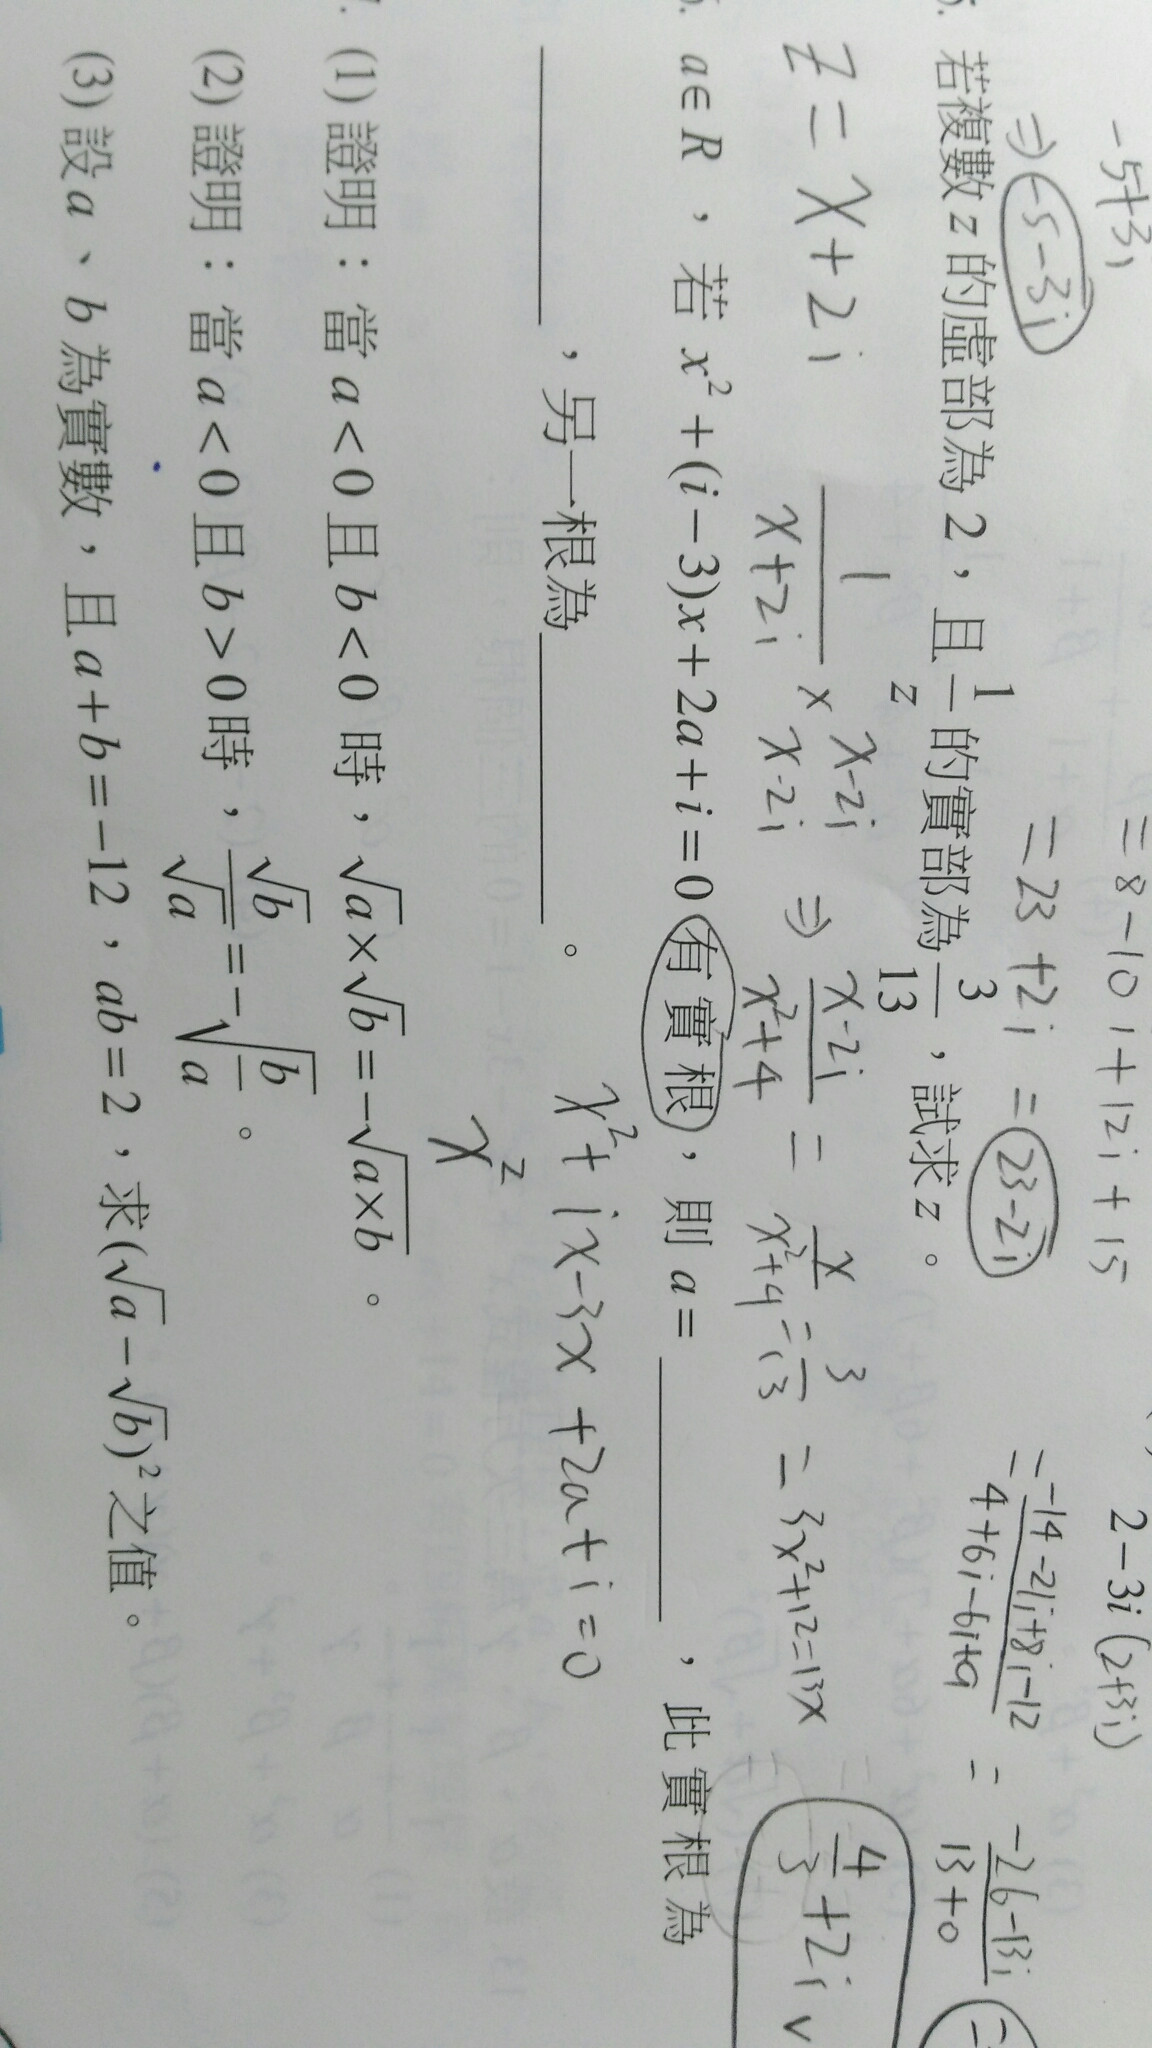 -5+3i
⇒ -5-3i
= 8-10i+12i+15
= 23+2i = 23-2i
2-3i(2+3i)
= -14-21i+8i-12 / 4+6i-6i+9 = -26-13i / 13+0
5. 若複數z的虛部為2，且1/z的實部為3/13，試求z。
z = x+2i
1/(x+2i) × (x-2i)/(x-2i) ⇒ (x-2i)/(x²+4) = x/(x²+4) = 3/13 = 3x²+12=13x = 4/3+2i
6. a∈R，若x²+(i-3)x+2a+i=0有實根，則a=________，此實根為
________，另一根為________。
x²+ix-3x+2a+i=0
x²
7. (1) 證明：當a<0且b<0時，√a×√b=-√(a×b)。
(2) 證明：當a<0且b>0時，√b/√a=-√(b/a)。
(3) 設a、b為實數，且a+b=-12，ab=2，求(√a-√b)²之值。